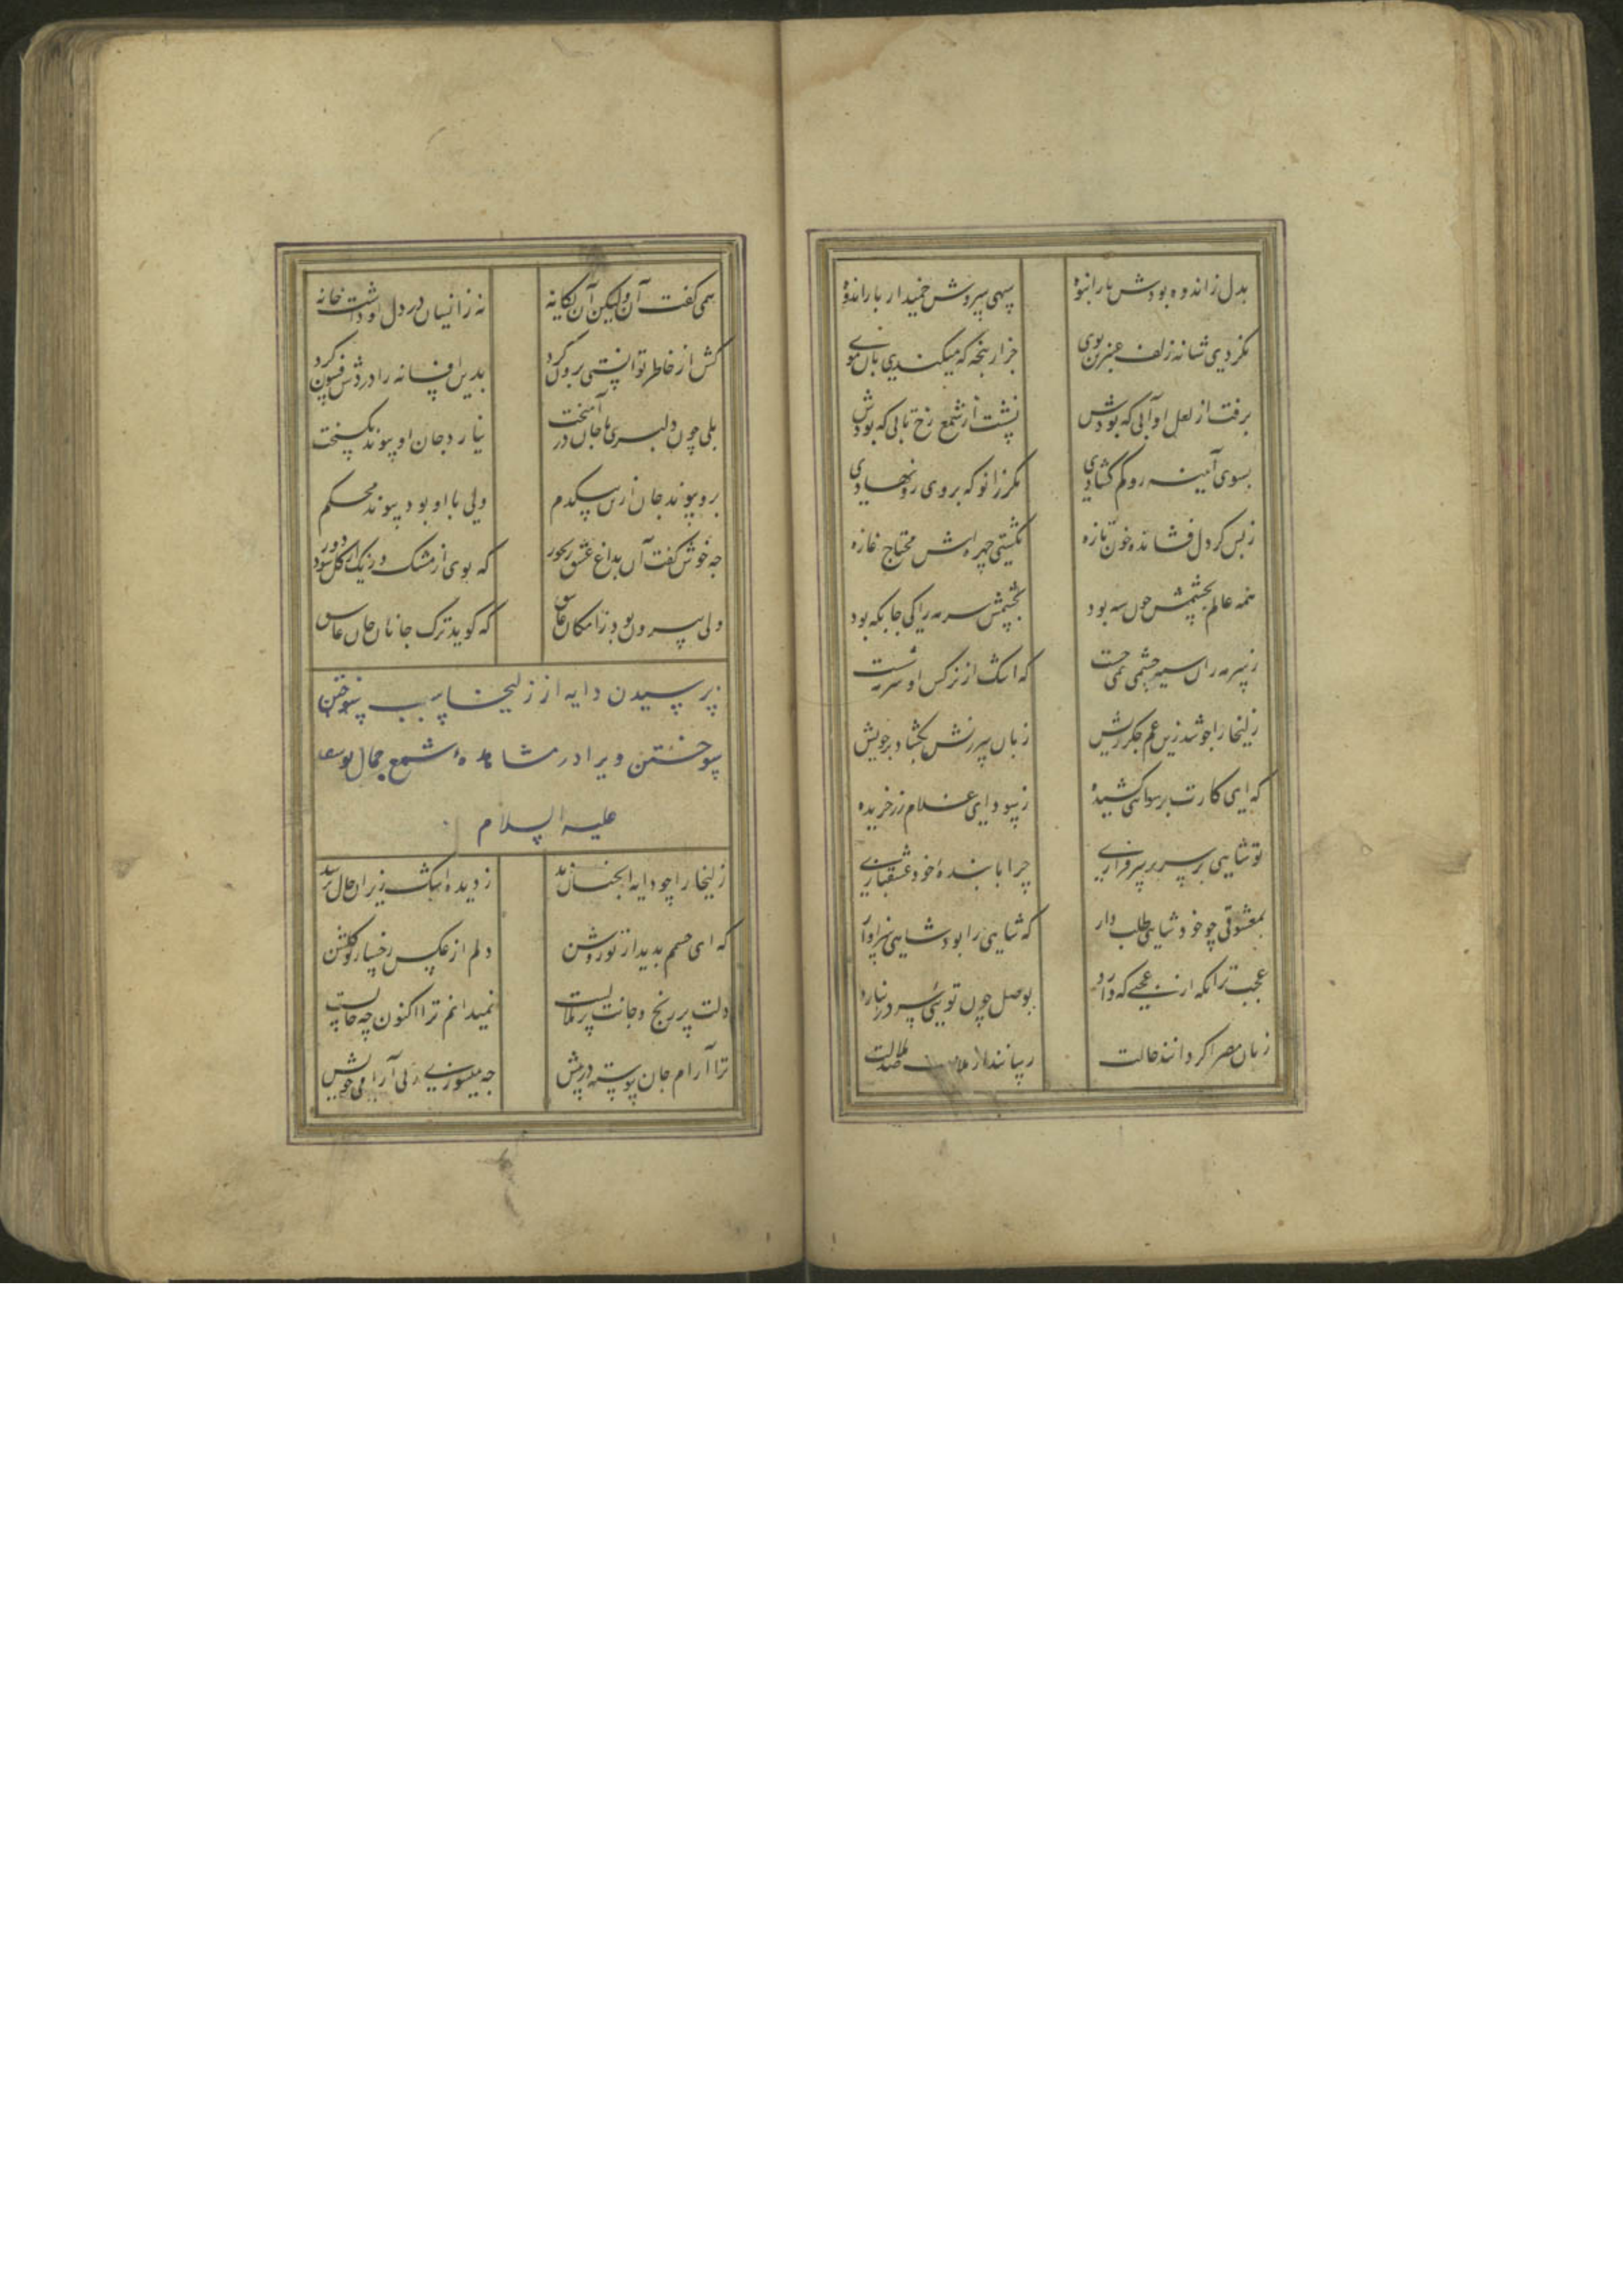 بدل ز اندوه بودش بار انبوه سهی سروش خمید از بار اندوه
نکردی شانه زلف عنبرین بوی جز از پنجه که میکندی بآن موی
برفت از لعل او آبی که بودش نشست از شمع رخ تابی که بودش
بسوی آینه رو کم گشادی مگر زانو که بر وی رو نهادی
ز بس کز دل فشانده خون تازه نگشتی چهره اش محتاج غازه
همه عالم بچشمش چون سیه بود بچشمش سرمه را کی جایگه بود
ز سرمه زان سیه چشمی نمی جست که اشک از نرگس او سرمه می شست
زلیخا را چو شد زین غم جگر ریش زبان سرزنش بگشاد بر خویش
که ای کارت برسوائی کشیده ز سودای غلام زر خریده
تو شاهی بر سریر سرفرازی چرا با بنده خود عشقبازی
بمعشوقی چو خود شاهی طلب دار که شاهی را بود شاهی سزاوار
عجب تر آنکه از عجبی که دارد بوصل چون تویی سر در نیارد
زنان مصر اگر دانند حالت رسانند از ملامت صد ملالت
همی گفت آن ولیکن آن یگانه نه زانسان در دل او داشت خانه
کش از خاطر توانستی برون کرد بدین افسانه را در دش فسون کرد
بلی چون دلبری با جان در آمیخت نیارد جان او پیوند بگسیخت
برد پیوند جان از تن بیکدم ولی با او بود پیوند محکم
چه خوش گفت آن بداغ عشق رنجور که بوی از مشک و رنگ از گل شود دور
ولی بیرون بود ز امکان عاشق که گوید ترک جانان جان عاشق
پرسیدن دایه از زلیخا سبب سوختن
سوختن ویرا در مشاهده شمع جمال یوسف
علیه السلام
زلیخا را چو دایه آنچنان دید ز دیده اشک ریزان حال پرسید
که ای چشمم بدیدار تو روشن دلم از عکس رخسار تو گلشن
دلت پر رنج و جانت پر ملالست نمیدانم ترا اکنون چه حالست
ترا آرام جان پیوسته در پیش چه میسوزی ز بی آرامی خویش